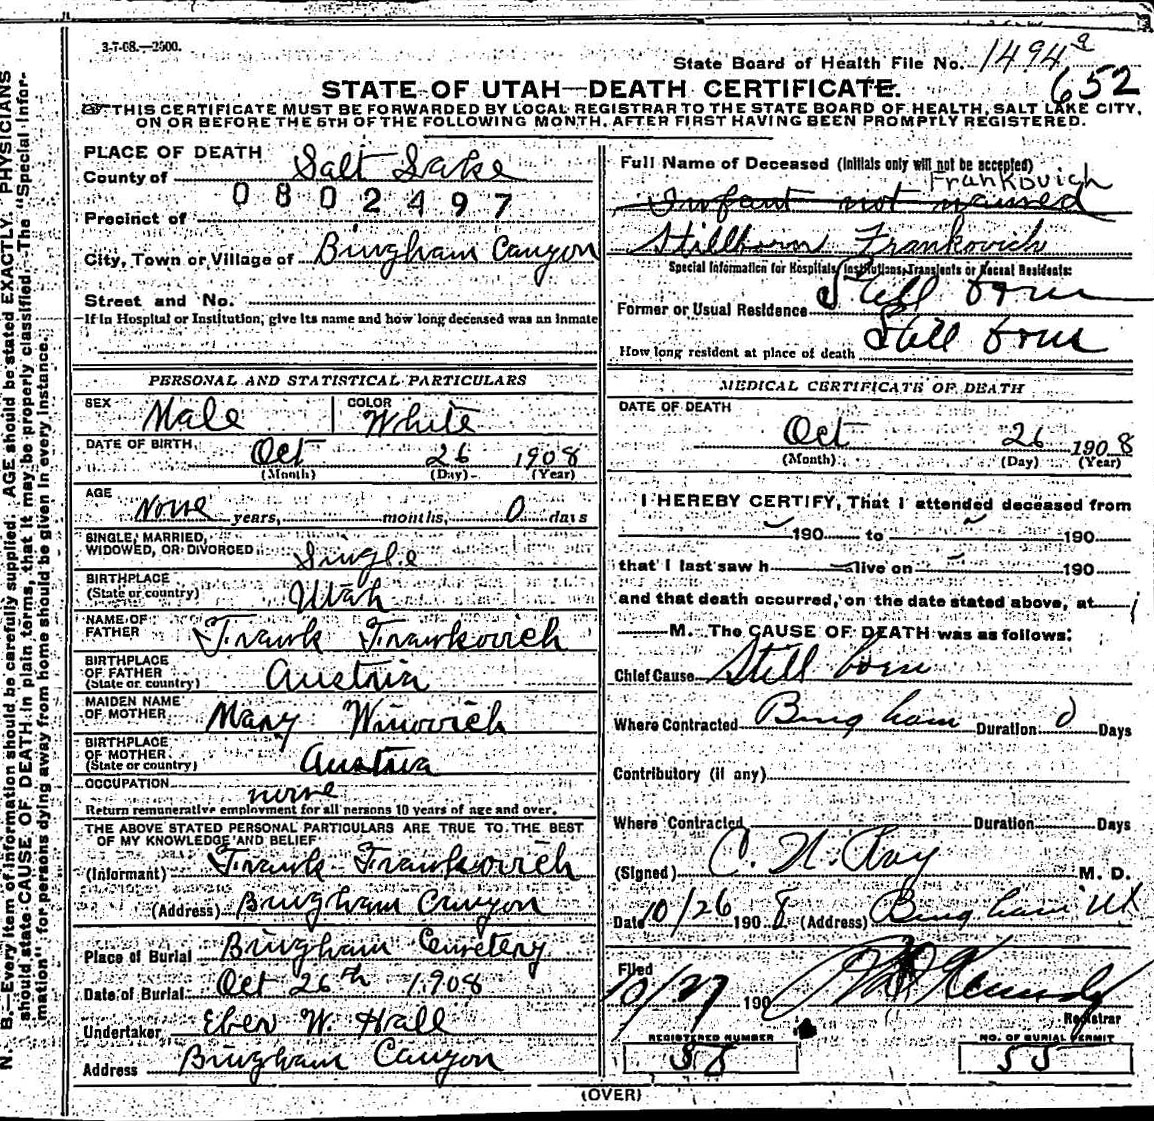 3-7-08.—2500.
State Board of Health File No. 1494 a
652
STATE OF UTAH—DEATH CERTIFICATE.
THIS CERTIFICATE MUST BE FORWARDED BY LOCAL REGISTRAR TO THE STATE BOARD OF HEALTH, SALT LAKE CITY,
ON OR BEFORE THE 5TH OF THE FOLLOWING MONTH, AFTER FIRST HAVING BEEN PROMPTLY REGISTERED.
PLACE OF DEATH
County of Salt Lake
0802497
Precinct of
City, Town or Village of Bingham Canyon
Street and No.
If in Hospital or Institution, give its name and how long deceased was an inmate
PERSONAL AND STATISTICAL PARTICULARS
SEX Male COLOR White
DATE OF BIRTH Oct 26 1908
(Month) (Day) (Year)
AGE None years, months, 0 days
SINGLE, MARRIED,
WIDOWED, OR DIVORCED Single
BIRTHPLACE
(State or country) Utah
NAME OF
FATHER Frank Frankovich
BIRTHPLACE
OF FATHER
(State or country) Austria
MAIDEN NAME
OF MOTHER Mary Winovich
BIRTHPLACE
OF MOTHER
(State or country) Austria
OCCUPATION none
Return remunerative employment for all persons 10 years of age and over.
THE ABOVE STATED PERSONAL PARTICULARS ARE TRUE TO THE BEST
OF MY KNOWLEDGE AND BELIEF
(Informant) Frank Frankovich
(Address) Bingham Canyon
Place of Burial Bingham Cemetery
Date of Burial Oct 26th 1908
Undertaker Eber W. Hall
Address Bingham Canyon
Full Name of Deceased (Initials only will not be accepted)
Frankovich
Infant not named
Stillborn Frankovich
Special Information for Hospitals, Institutions, Transients or Recent Residents:
Former or Usual Residence Still born
How long resident at place of death Still born
MEDICAL CERTIFICATE OF DEATH
DATE OF DEATH
Oct 26 1908
(Month) (Day) (Year)
I HEREBY CERTIFY, That I attended deceased from
190 to 190
that I last saw h alive on 190
and that death occurred, on the date stated above, at
M. The CAUSE OF DEATH was as follows:
Chief Cause Still born
Where Contracted Bingham Duration 0 Days
Contributory (if any)
Where Contracted Duration Days
(Signed) C. N. Ray M. D.
Date 10/26 1908 (Address) Bingham Ut
Filed
10/27 190 Kennedy
Registrar
REGISTERED NUMBER NO. OF BURIAL PERMIT
58 55
(OVER)
N. B.—Every item of information should be carefully supplied. AGE should be stated EXACTLY. PHYSICIANS
should state CAUSE OF DEATH in plain terms, that it may be properly classified. The "Special Infor-
mation" for persons dying away from home should be given in every instance.